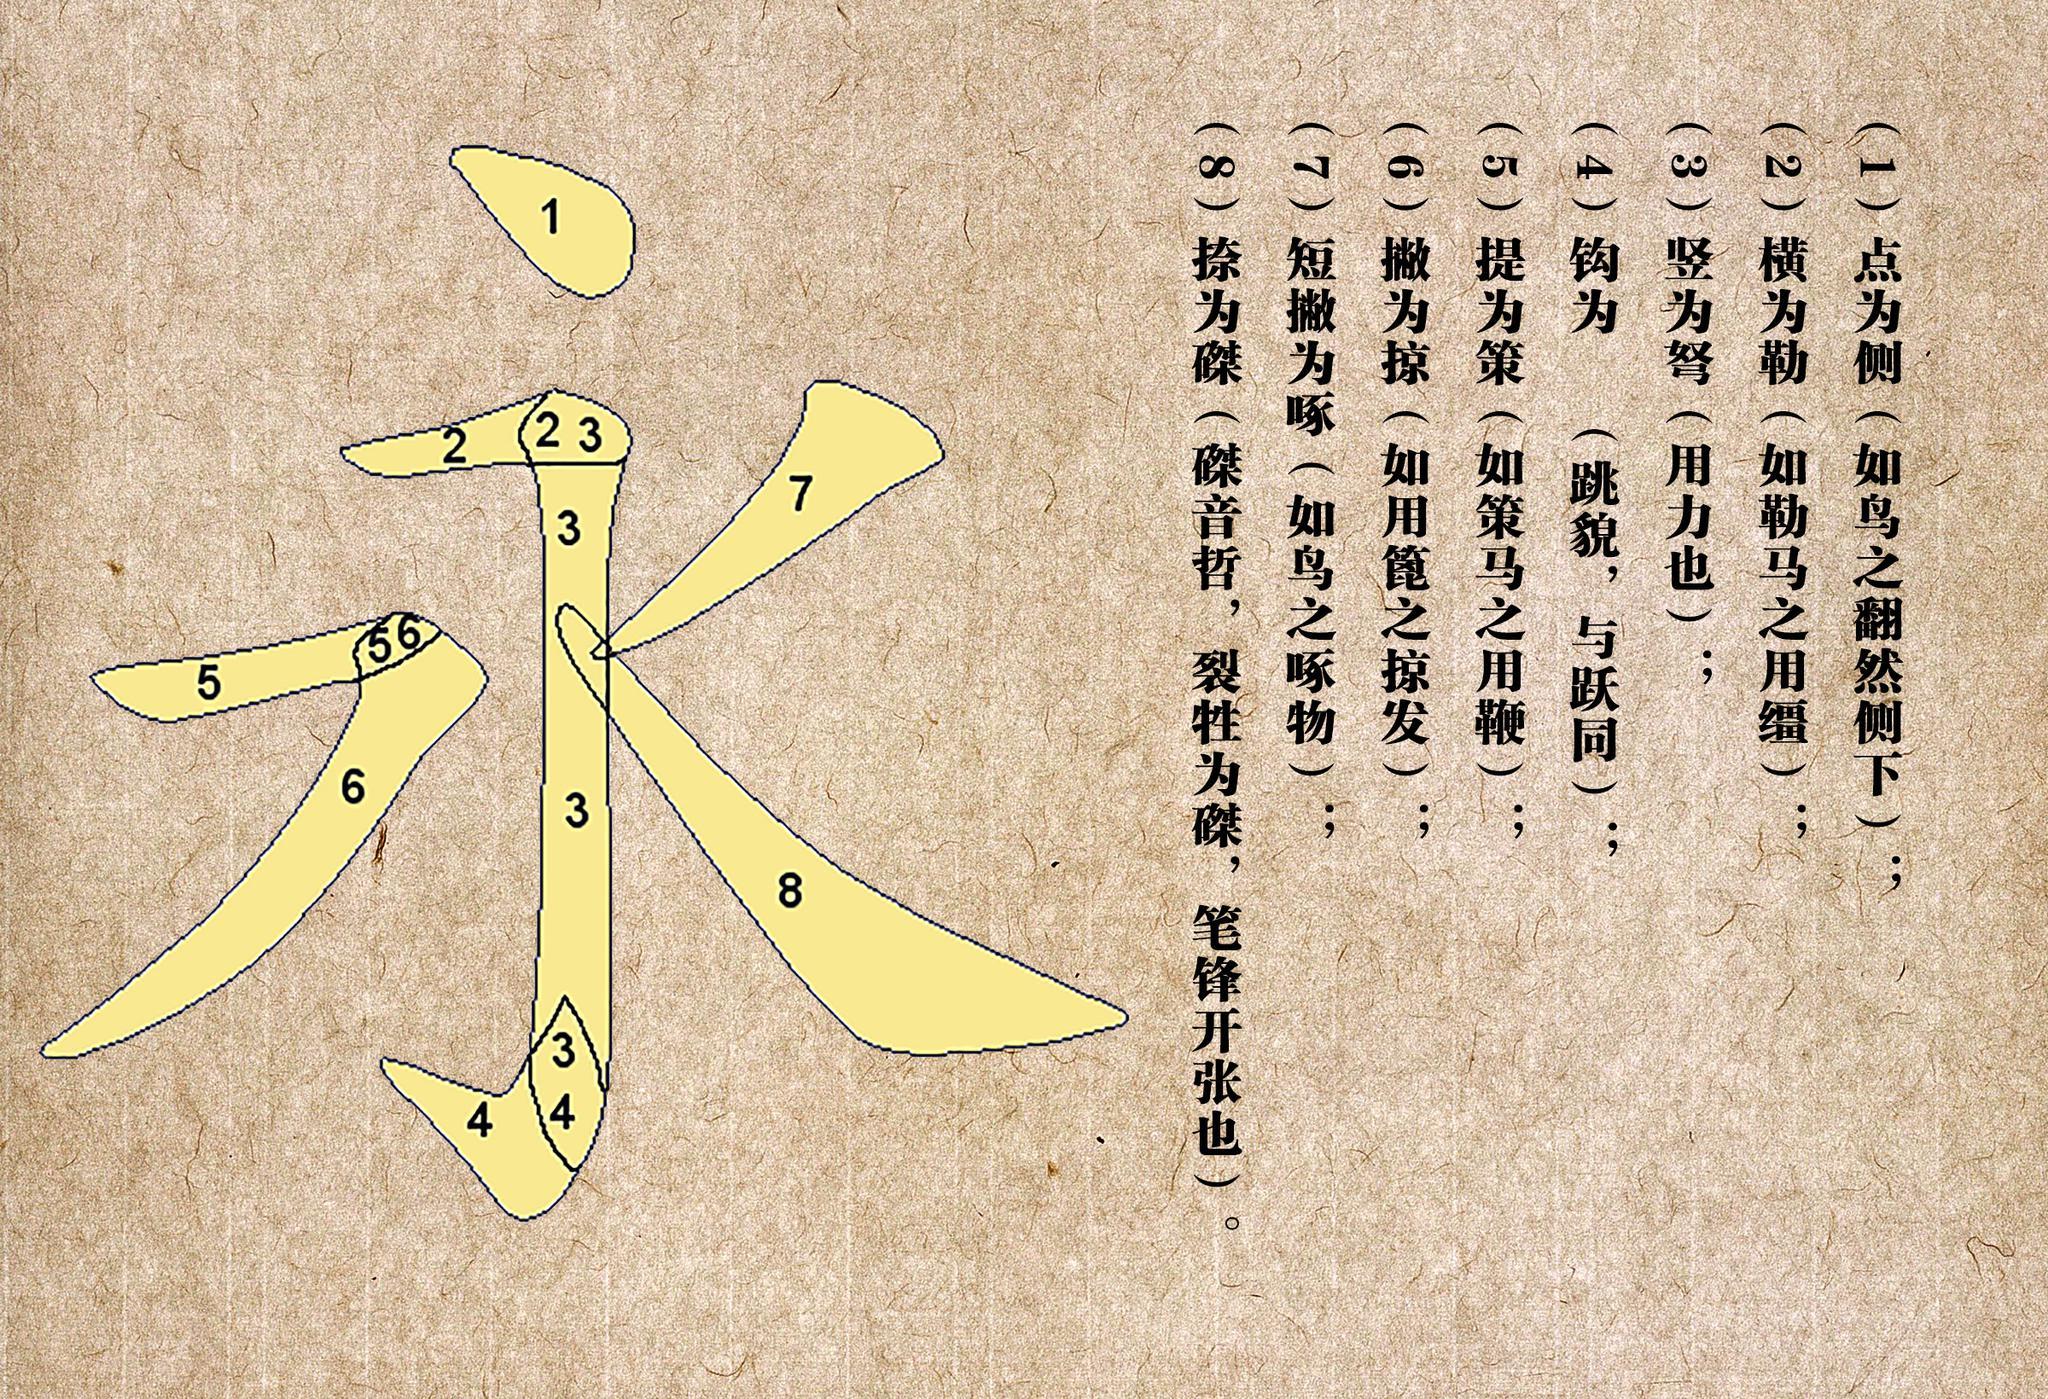 (1)点为侧(如鸟之翻然侧下);
(2)横为勒(如勒马之用缰);
(3)竖为弩(用力也);
(4)钩为 (跳貌,与跃同);
(5)提为策(如策马之用鞭);
(6)撇为掠(如用篦之掠发);
(7)短撇为啄(如鸟之啄物);
(8)捺为磔(磔音哲,裂牲为磔,笔锋开张也)。
1
2
2 3
3
7
5 6
5
6
3
8
3
4
4